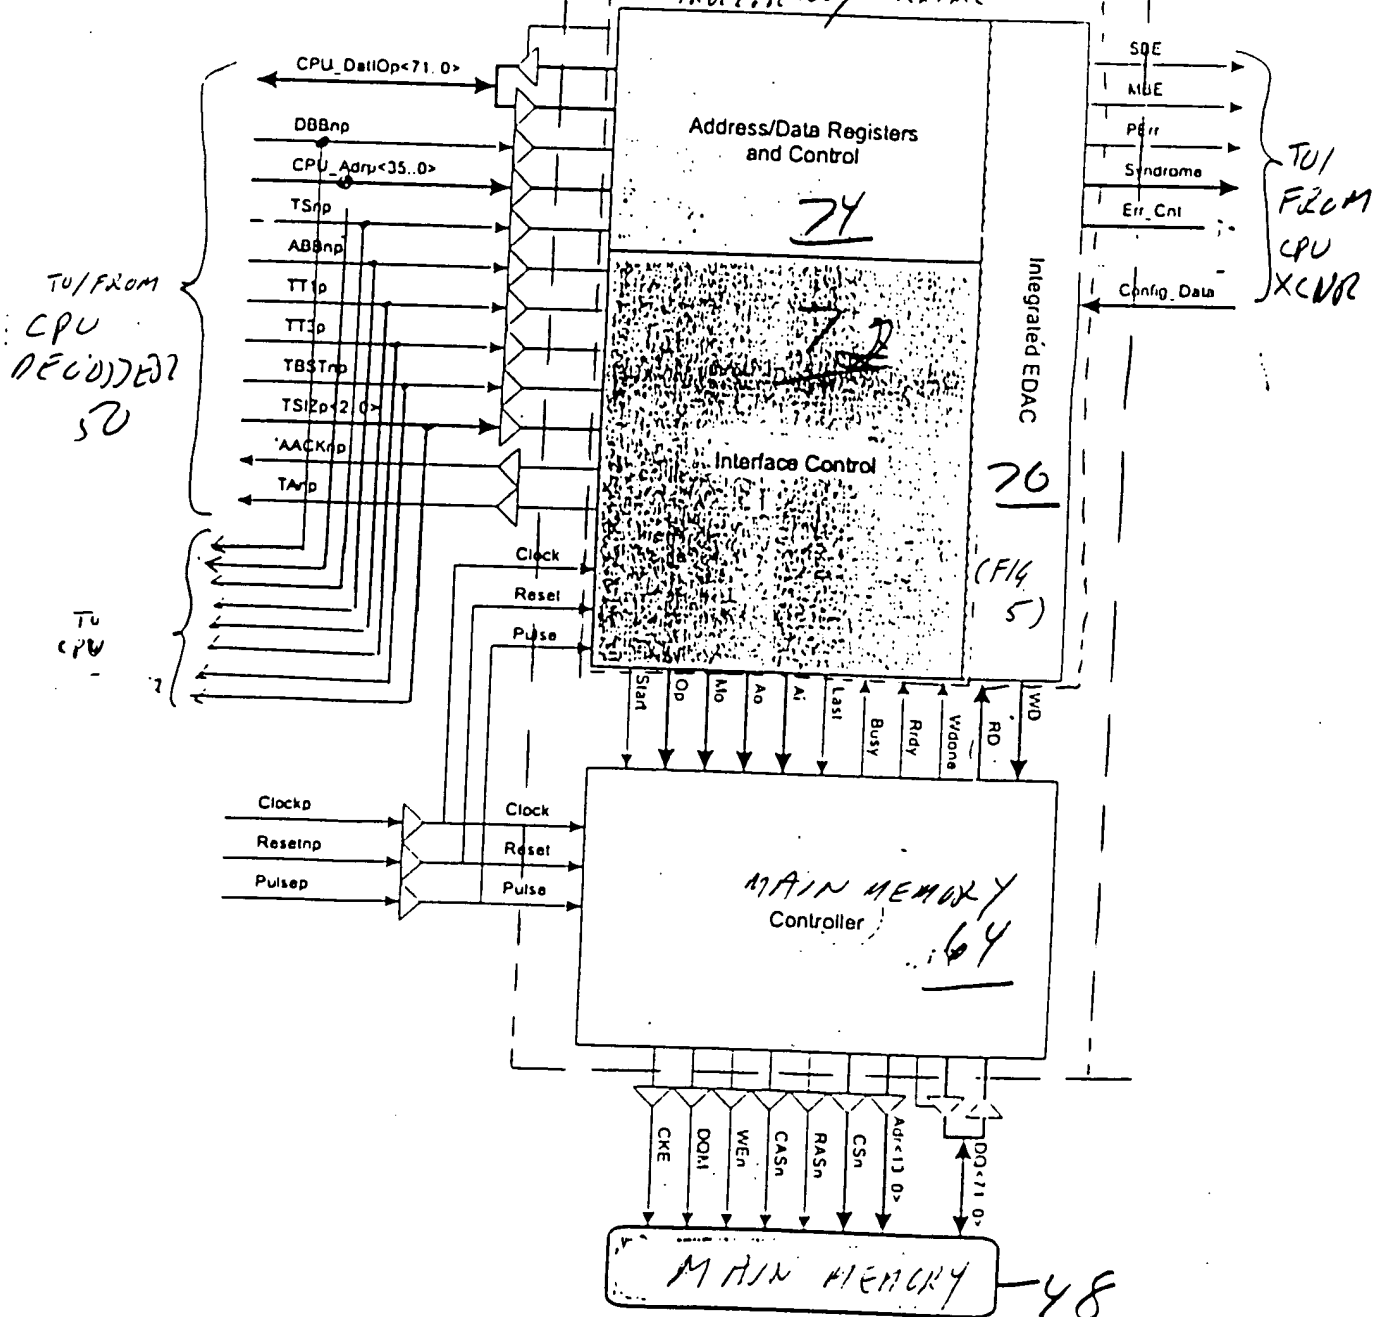 CPU_DatIOp<71..0>
DBBnp
CPU_Adrp<35..0>
TSnp
ABBnp
TT1p
TT3p
TBSTnp
TSIZp<2..0>
AACKnp
TAnp
TO/FROM
CPU
50
TO
CPU
Address/Data Registers
and Control
74
72
Interface Control
Integrated EDAC
76
(FIG
5)
SBE
MBE
PErr
Syndrome
Err_Cnt
Config_Data
TO/
FROM
CPU
Clock
Reset
Pulse
Start
Op
Mo
Ao
Ai
Last
Busy
Rrdy
Wdone
RD
WD
Clockp
Resetnp
Pulsep
Clock
Reset
Pulse
MAIN MEMORY
Controller
64
CKE
DQM
WEn
CASn
RASn
CSn
Adr<13..0>
DQ<71..0>
MAIN MEMORY
48